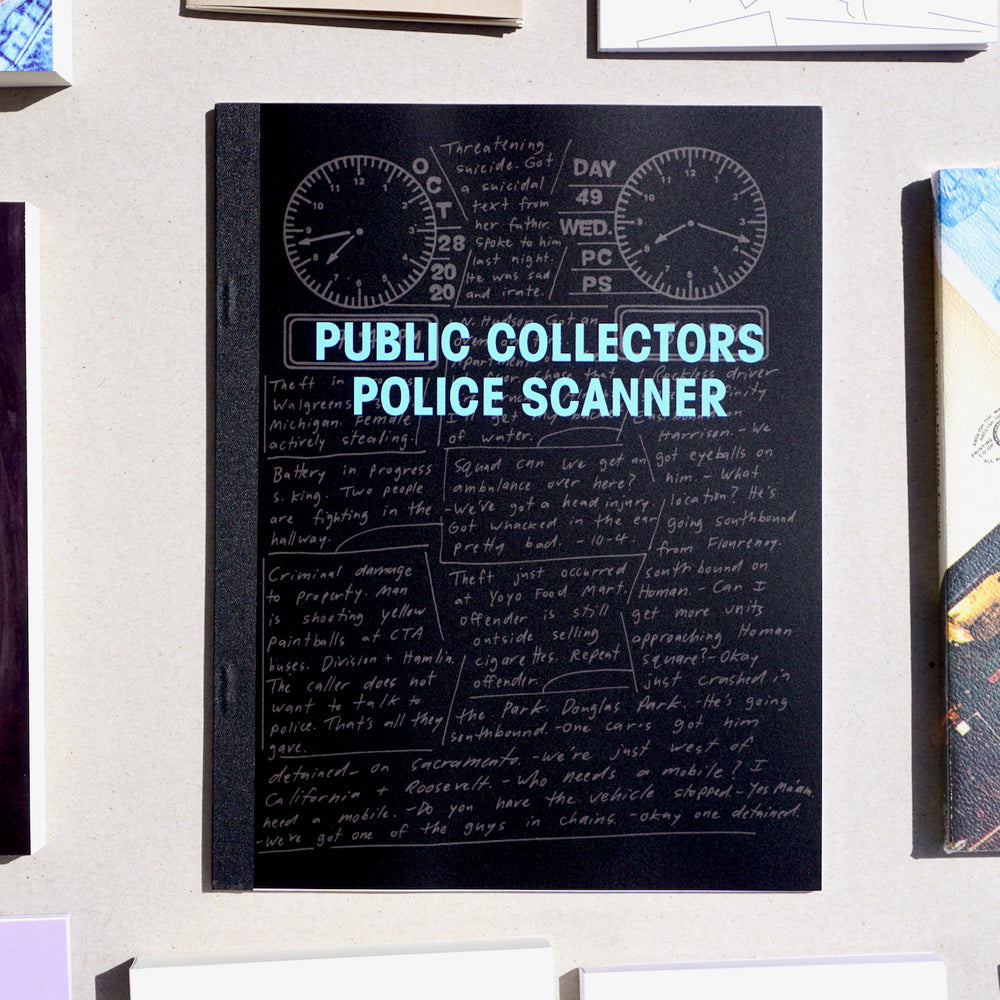 OCT
28
20
20
Threatening
suicide. Got
a suicidal
text from
her father.
Spoke to him
last night.
He was sad
and irate.
DAY
49
WED.
PC
PS
12
11
10
9
8
7
6
5
12
11
1
10
2
9
3
8
4
7
6
5
PUBLIC COLLECTORS
POLICE SCANNER
N. Hudson Got an
Theft in
Walgreens
Michigan. Female
actively stealing.
of water.
Reckless driver
Harrison. - We
got eyeballs on
him. - What
location? He's
going southbound
from Flournoy.
southbound on
Homan. - Can I
get more units
approaching Homan
square? - Okay
just crashed in
the Park. Douglas Park. - He's going
southbound. - One car's got him
detained - on Sacramento. - We're just west of
California + Roosevelt. - Who needs a mobile? I
need a mobile. - Do you have the vehicle stopped - Yes Ma'am
- We've got one of the guys in chains. - Okay one detained.
Battery in progress
S. King. Two people
are fighting in the
hallway.
Squad can we get an
ambulance over here?
- We've got a head injury.
Got whacked in the ear
pretty bad. - 10-4.
Criminal damage
to property. Man
is shooting yellow
paintballs at CTA
buses. Division + Hamlin.
The caller does not
want to talk to
police. That's all they
gave.
Theft just occurred
at Yoyo Food Mart.
offender is still
outside selling
cigarettes. Repeat
offender.